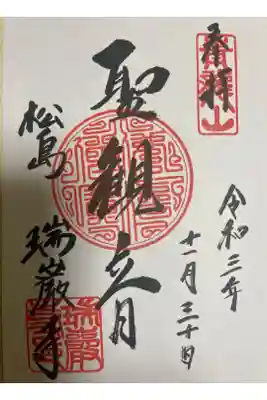 奉拝
青龍山
令和三年
十一月三十日
聖観音
松島 瑞巌寺